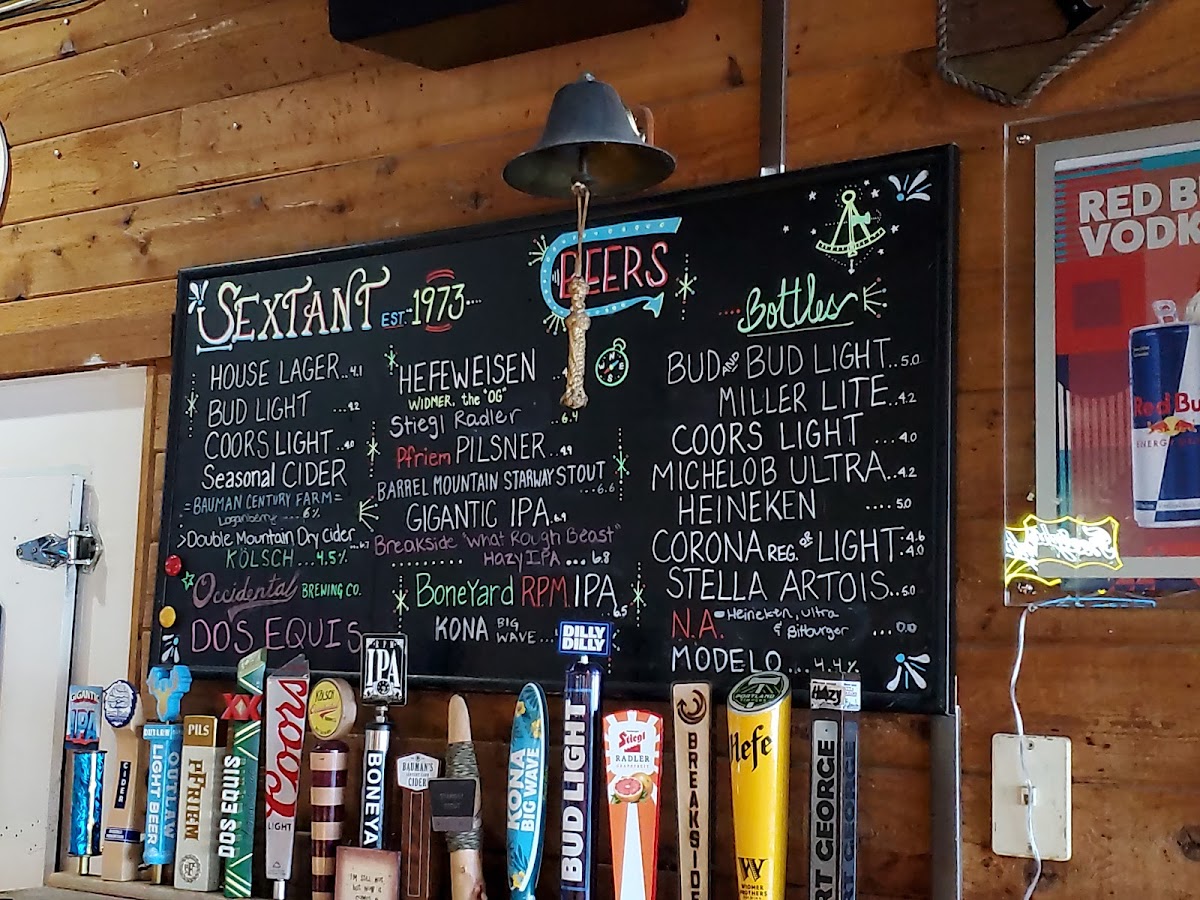 SEXTANT EST. 1973
HOUSE LAGER..4.1
BUD LIGHT ...4.2
COORS LIGHT...4.0
Seasonal CIDER
=BAUMAN CENTURY FARM=
Loganberry ... 6%
>Double Mountain Dry Cider
KÖLSCH...4.5%
Occidental BREWING CO.
DOS EQUIS
BEERS
HEFEWEISEN
WIDMER, the "OG"
Stiegl Radler
Pfriem PILSNER..4.9
BARREL MOUNTAIN STARWAY STOUT
...6.6
GIGANTIC IPA.6.9
Breakside "What Rough Beast"
Hazy IPA...6.8
BoneYard R.P.M. IPA
6.5
KONA BIG WAVE...
Bottles
BUD AND BUD LIGHT..5.0
MILLER LITE..4.2
COORS LIGHT ...4.0
MICHELOB ULTRA..4.2
HEINEKEN ....5.0
CORONA REG. & LIGHT
4.6
4.0
STELLA ARTOIS..5.0
N.A. Heineken, Ultra
& Bitburger ...0.0
MODELO...4.4%
N
E
S
RED B
VODK
Red Bu
ENERG
GIGANTIC
IPA
CIDER
OUTLAW
LIGHT BEER
OUTLAW
PILS
PFRIEM
XX
DOS EQUIS
Coors
LIGHT
KÖLSCH
IPA
BONEYA
BAUMAN'S
CIDER
I'M STILL HOT
BUT NOW IT
KONA
BIG WAVE
DILLY
DILLY
BUD LIGHT
Stiegl
RADLER
GRAPEFRUIT
BREAKSIDE
PORTLAND
Hefe
W
WIDMER
BROTHERS
HAZY
RT GEORGE
RT GEORGE